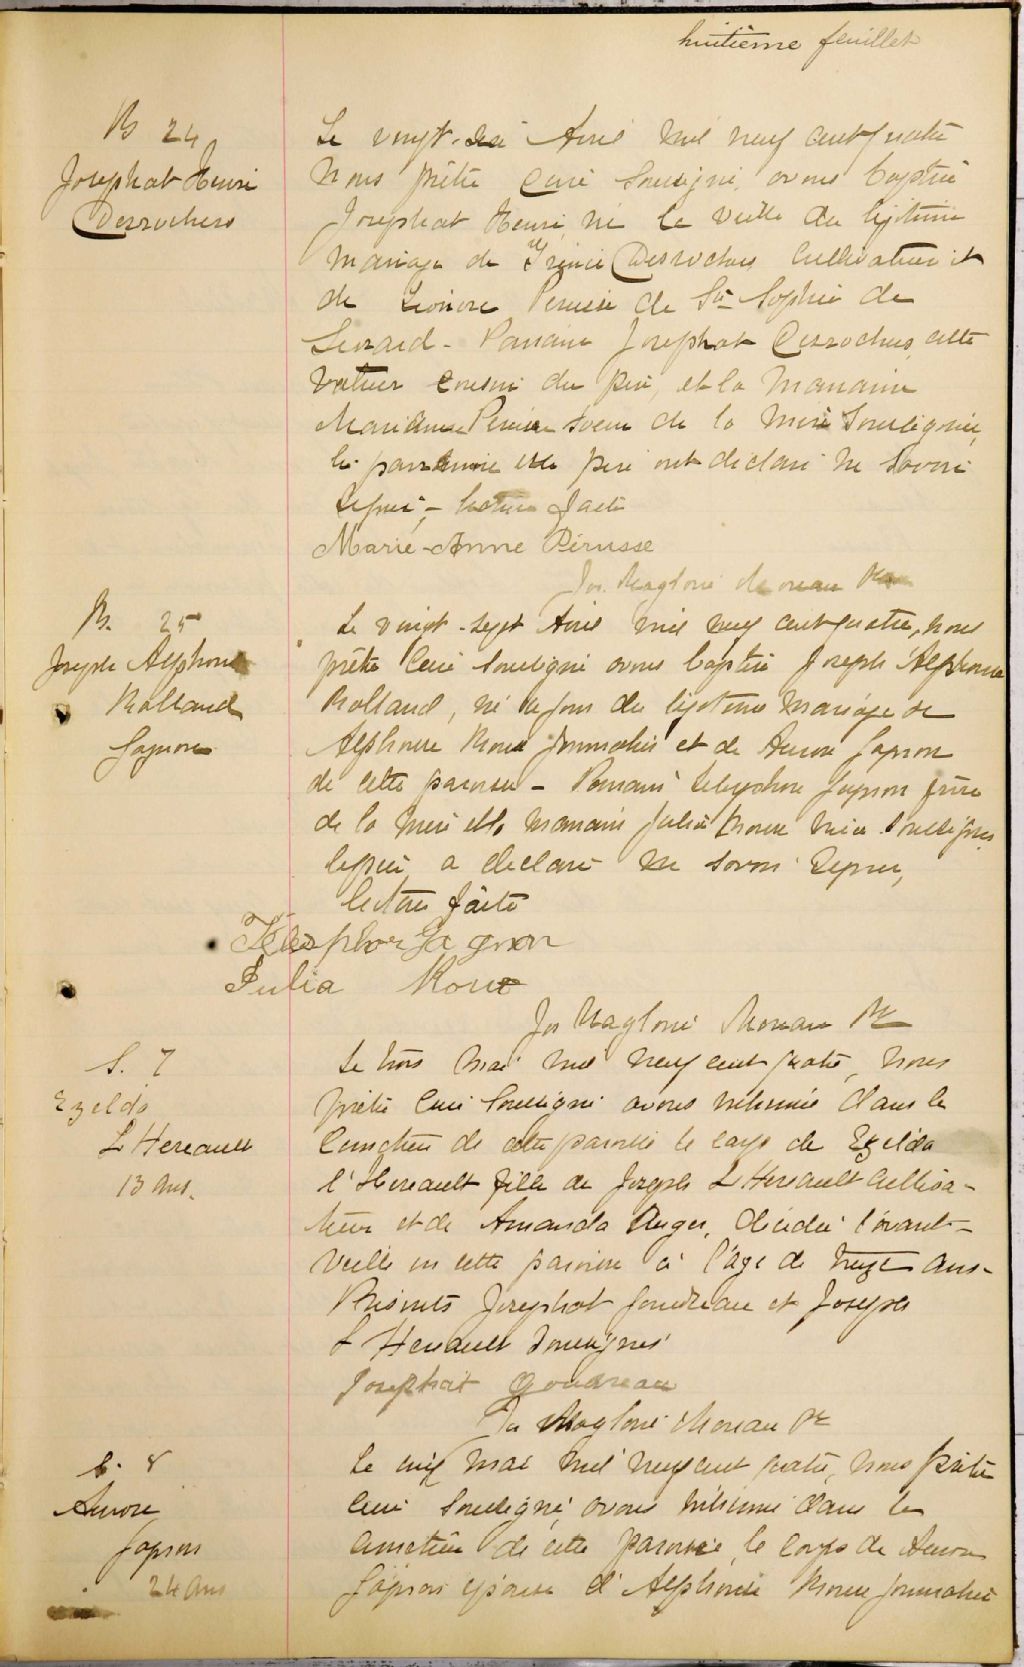 huitième feuillet
B 24
Josephat Henri
Desrochers
Le vingt-six Avril mil neuf cent quatre
Nous prêtre Curé Soussigné, avons baptisé
Josephat Henri né la veille du légitime
mariage de Desrochers Cultivateur et
de Léonore Perusse de Ste Sophie de
Levrard - Parrain Josephat Desrochers, culti
vateur cousin du père, et la Marraine
Marianne Perusse soeur de la mère Soussignée,
le parrain et le père ont déclaré ne savoir
signer, - lecture faite
Marie-Anne Pérusse
Jos. Magloire Moreau Ptre
B. 25
Joseph Alphonse
Rolland
Gagnon
Le vingt-sept Avril mil neuf cent quatre, nous
prêtre Curé Soussigné avons baptisé Joseph Alphonse
Rolland, né le jour du légitime mariage de
Alphonse journalier et de Aurore Gagnon
de cette paroisse - Parrain Telesphore Gagnon frère
de la mère et la marraine Julia soussignés
le père a déclaré ne savoir signer,
lecture faite
Telesphor Gagnon
Julia
Jos Magloire Moreau Ptre
S. 7
Ezelda
L'Hereault
13 ans.
Le trois mai mil neuf cent quatre, nous
prêtre Curé Soussigné avons inhumé dans le
Cimetière de cette paroisse le corps de Ezelda
l'Hereault fille de Joseph L'Hereault cultiva-
teur et de Amanda Auger, décédée l'avant-
veille en cette paroisse à l'âge de treize ans-
Présents Josephat Goudreau et Joseph
L'Hereault soussignés
Josephat Goudreau
Jos Magloire Moreau Ptre
S. 8
Aurore
Gagnon
24 ans
Le cinq mai mil neuf cent quatre, nous prêtre
Curé Soussigné, avons inhumé dans le
Cimetière de cette paroisse, le corps de Aurore
Gagnon épouse d'Alphonse journalier